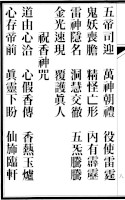 五帝司迎　萬神朝禮　役使雷霆
鬼妖喪膽　精怪亡形　內有霹靂
雷神隱名　洞慧交徹　五炁騰騰
金光速現　覆護真人
祝香神咒
道由心洽　心假香傳　香爇玉爐
心存帝前　真靈下盼　仙旆臨軒